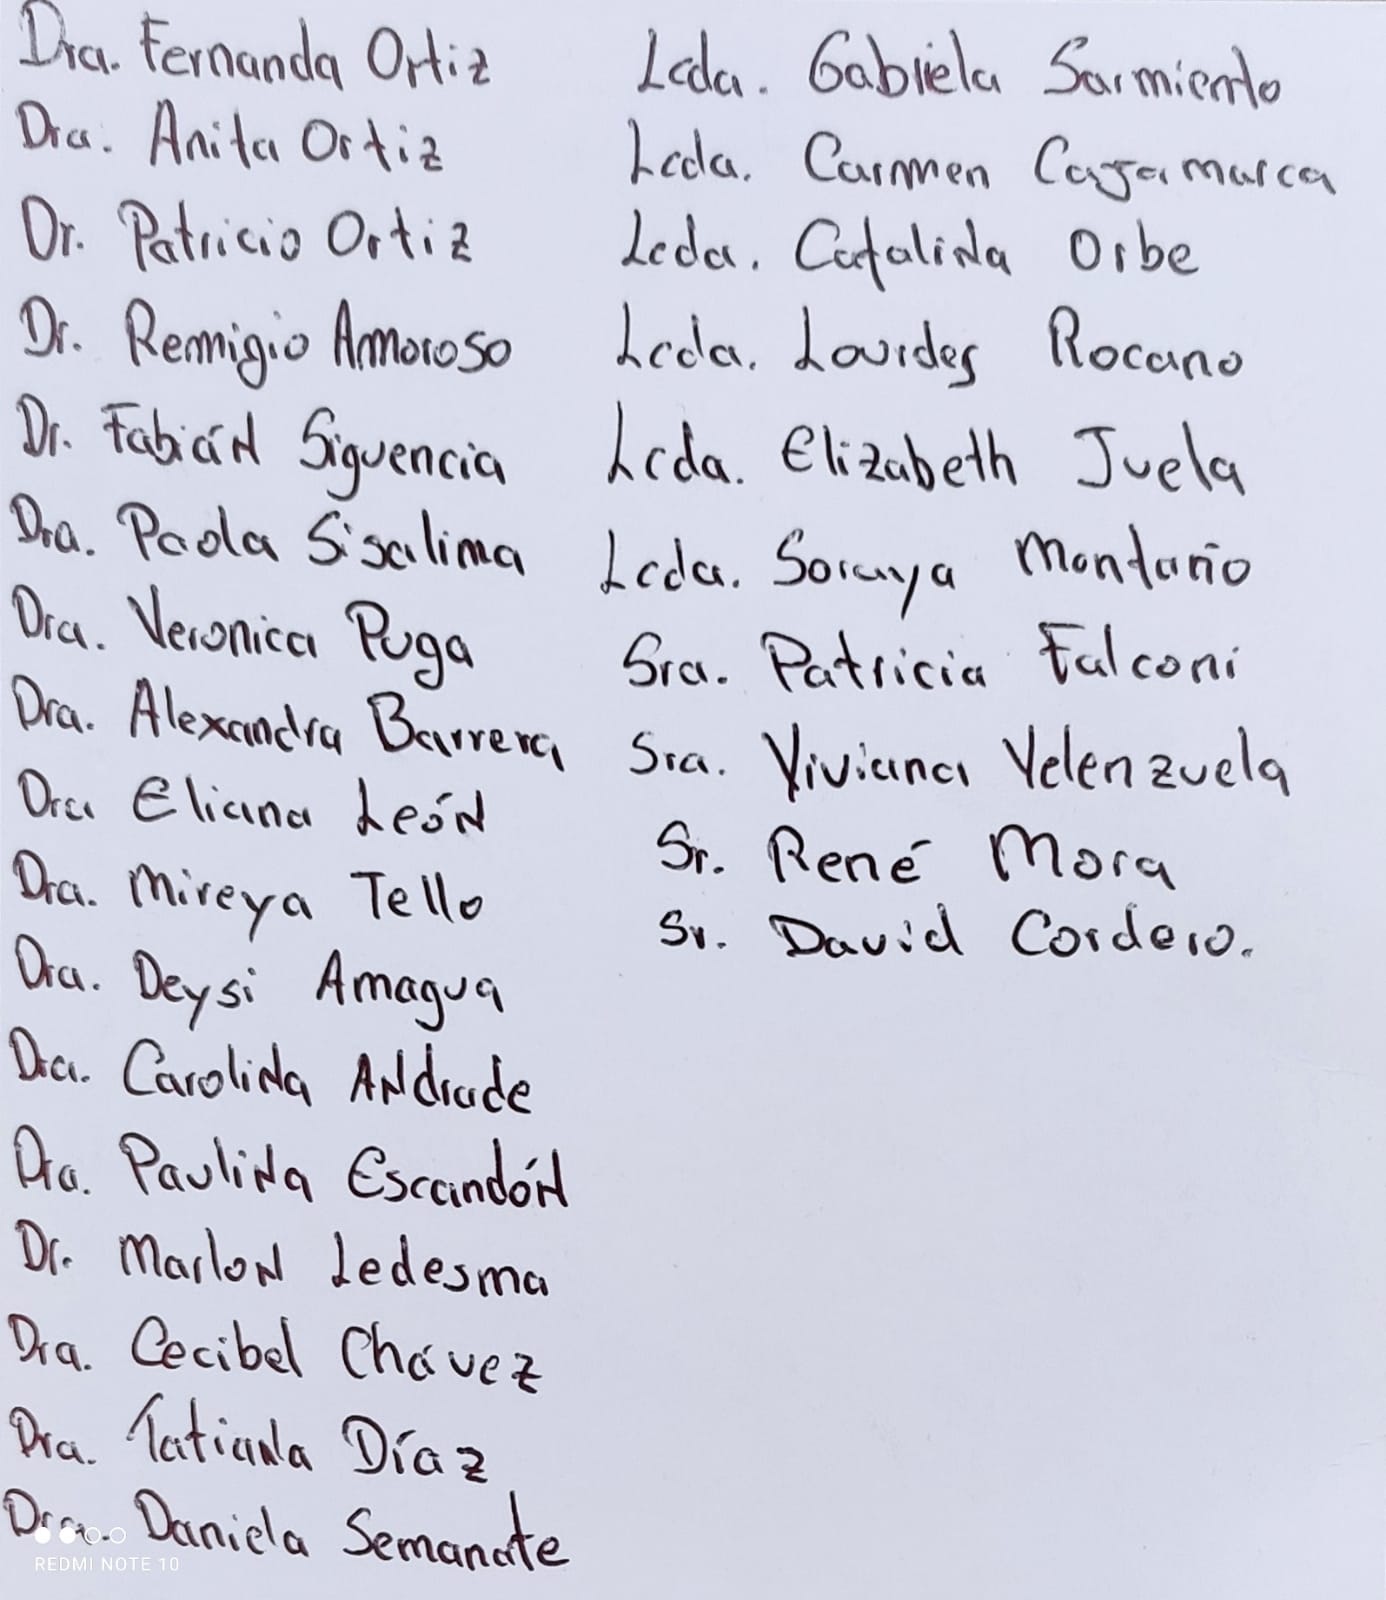 Dra. Fernanda Ortiz
Dra. Anita Ortiz
Dr. Patricio Ortiz
Dr. Remigio Amoroso
Dr. Fabián Siguencia
Dra. Paola Sisalima
Dra. Veronica Puga
Dra. Alexandra Barrera
Dra Eliana León
Dra. Mireya Tello
Dra. Deysi Amagua
Dra. Carolina Andrade
Dra. Paulina Escandón
Dr. Marlon Ledesma
Dra. Cecibel Chávez
Dra. Tatiana Díaz
Dra. Daniela Semanate
Lcda. Gabriela Sarmiento
Lcda. Carmen Cajamarca
Lcda. Catalina Orbe
Lcda. Lourdes Rocano
Lcda. Elizabeth Juela
Lcda. Soraya Montaño
Sra. Patricia Falconi
Sra. Viviana Velenzuela
Sr. René Mora
Sr. David Cordero.
REDMI NOTE 10